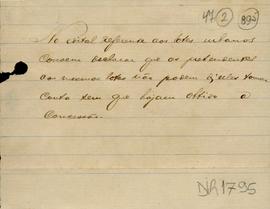 47 2 890
No edital referente aos lotes urbanos
Convem declarar que os pretendentes
aos mesmos lotes não podem d'elles tomar
Conta sem que hajam obtido a
Concessão.
DIR1795